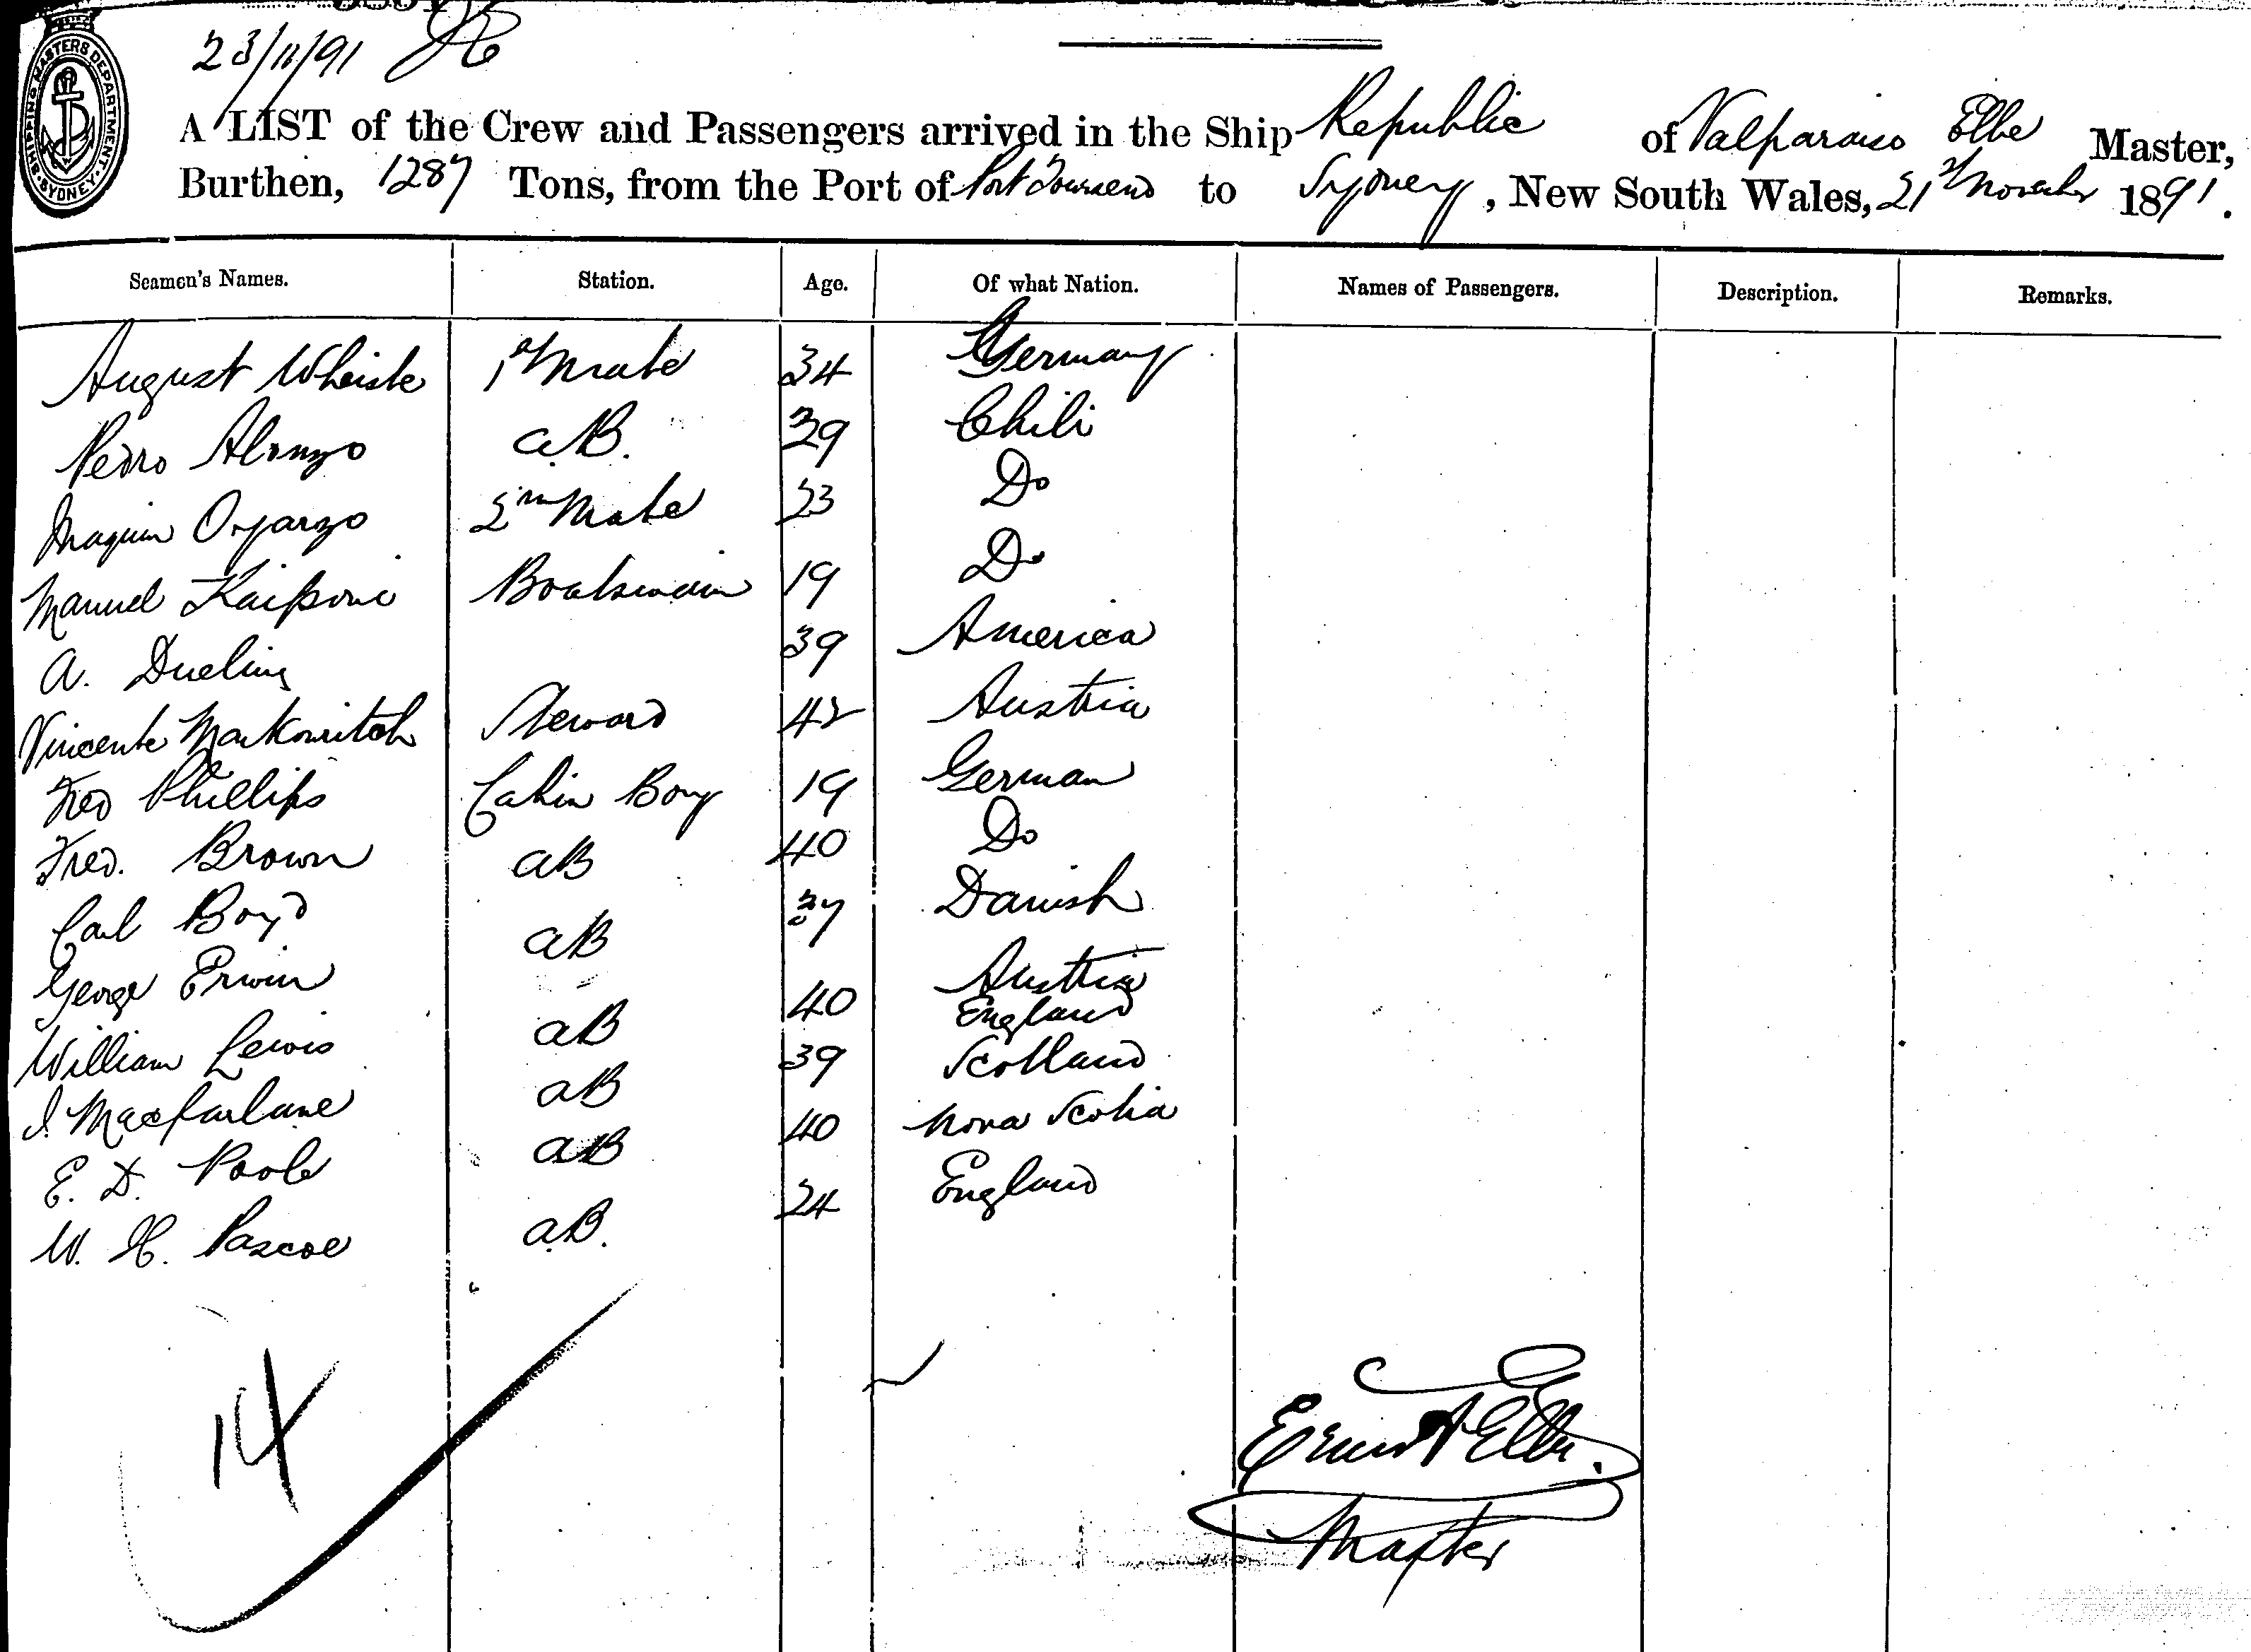 23/11/91
SHIPPING MASTERS DEPARTMENT SYDNEY
A LIST of the Crew and Passengers arrived in the Ship Republic of Valparaiso Elbe Master,
Burthen, 1287 Tons, from the Port of Port Townsend to Sydney, New South Wales, 21st November 1891.
Seamen's Names. Station. Age. Of what Nation. Names of Passengers. Description. Remarks.
August 1st Mate 34 Germany
Pedro Alonzo a.B. 39 Chili
Oyarzo 2nd Mate 23 Do
Manuel Boatswain 19 Do
A. 39 America
Vincente Markovitch Steward 42 Austria
Fred Phillips Cabin Boy 19 German
Fred. Brown aB 40 Do
Carl Boyd aB 37 Danish
George Erwin aB 40 Austria
William Lewis aB 39 England
J. Macfarlane aB 40 Scotland
E. D. Poole aB 24 Nova Scotia
W. H. Pascoe a.B. England
14
Ernest A Elbe.
Master